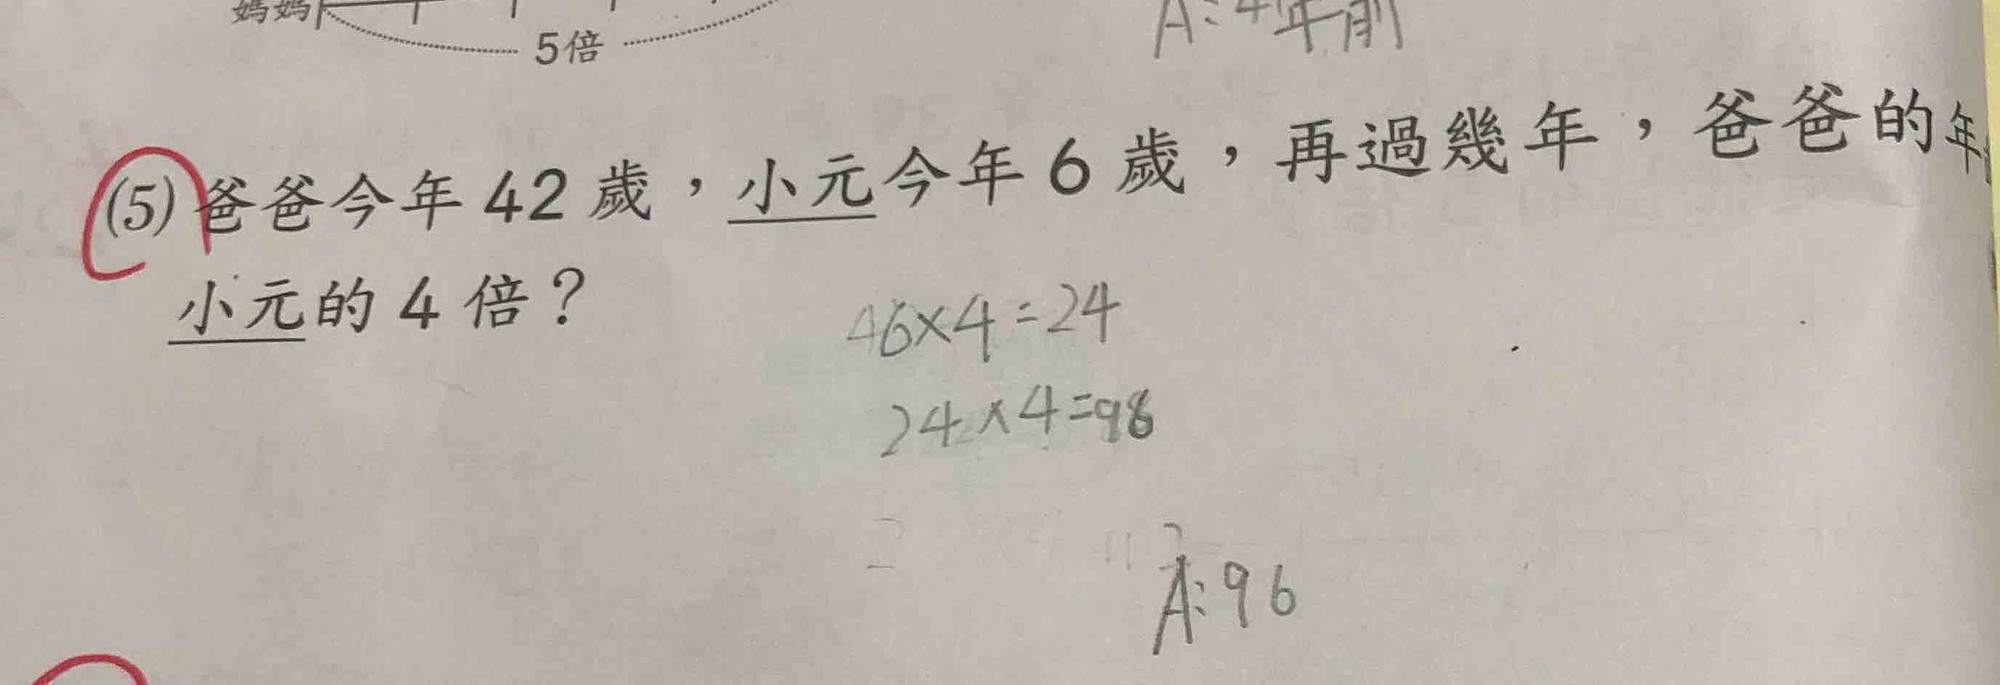 媽媽
5倍
A:4年前
(5)爸爸今年 42 歲，小元今年 6 歲，再過幾年，爸爸的年
小元的 4 倍？
46×4=24
24×4=98
A:96